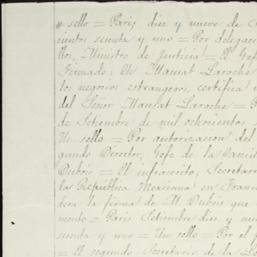 sello = Paris, diez y nueve de
cientos sesenta y uno = Por delegac
llos, Ministro de Justicia = El Gefe
Firmado: Ch Mausat Laroche
los negocios estrangeros, certifica
del Señor Mansat Laroche = P
de Setiembre de mil ochocientos
Un sello = Por autorizacion del
gundo Director, Gefe de la Cancil
Dubois = El infrascrito, Secretari
la Republica Mexicana en Franci
dica la firma de M. Dubois que
mento = Paris Setiembre diez y nue
senta y uno = Un sello = Por el
= El segundo Secretario de la Le